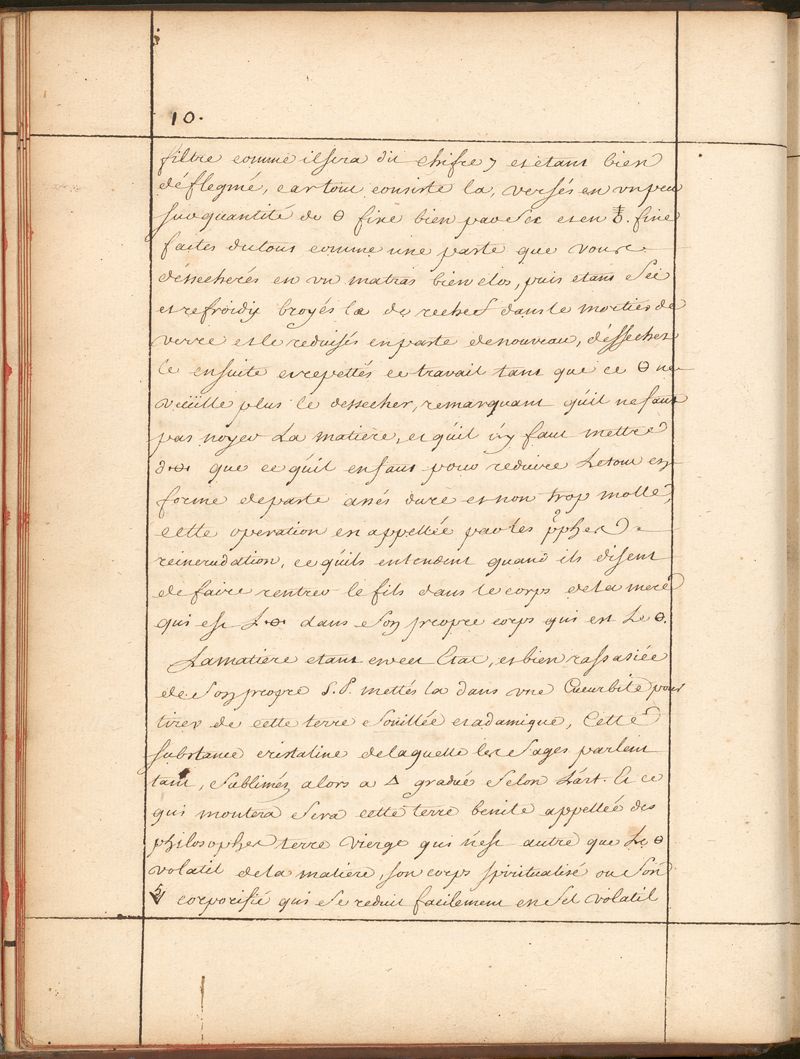 10.
filtre comme il sera dit chifre 7 et etant bien
déflegmé, car tout consiste la, versés en un peu
sur quantité de ⊖ fixe bien pur Sec et en fine
faites du tout comme une paste que vous
dessecherés en un matras bien clos, puis etant Sec
et refroidy broyés la de rechef dans le mortier de
verre et le reduisés en paste de nouveau, dessechez
le ensuite et repettés ce travail tant que ce ⊖ ne
veüille plus le dessecher, remarquant qu'il ne faut
pas noyer La matiere, et qu'il n'y faut mettre
que ce qu'il en faut pour reduire Le tout en
forme de paste assés dure et non trop molle,
cette operation en appellée par les pphes
reincrudation, ce qu'ils entendent quand ils disent
de faire rentrer le fils dans le corps de la mere
qui est L dans Son propre corps qui est Le ⊖.
La matiere etant en cet Etat, et bien rassasiée
de Son propre S.P. mettés la dans une Cucurbite pour
tirer de cette terre Souillée et adamique, Cette
substance cristaline de laquelle les Sages parlent
tant, Sublimez alors a △ gradué Selon L'art. Et ce
qui montera Sera cette terre benite appellée des
philosophes terre vierge qui n'est autre que Le ⊖
volatil de la matiere, son corps spiritualisé ou Son
corporifié qui Se reduit facilement en Sel volatil